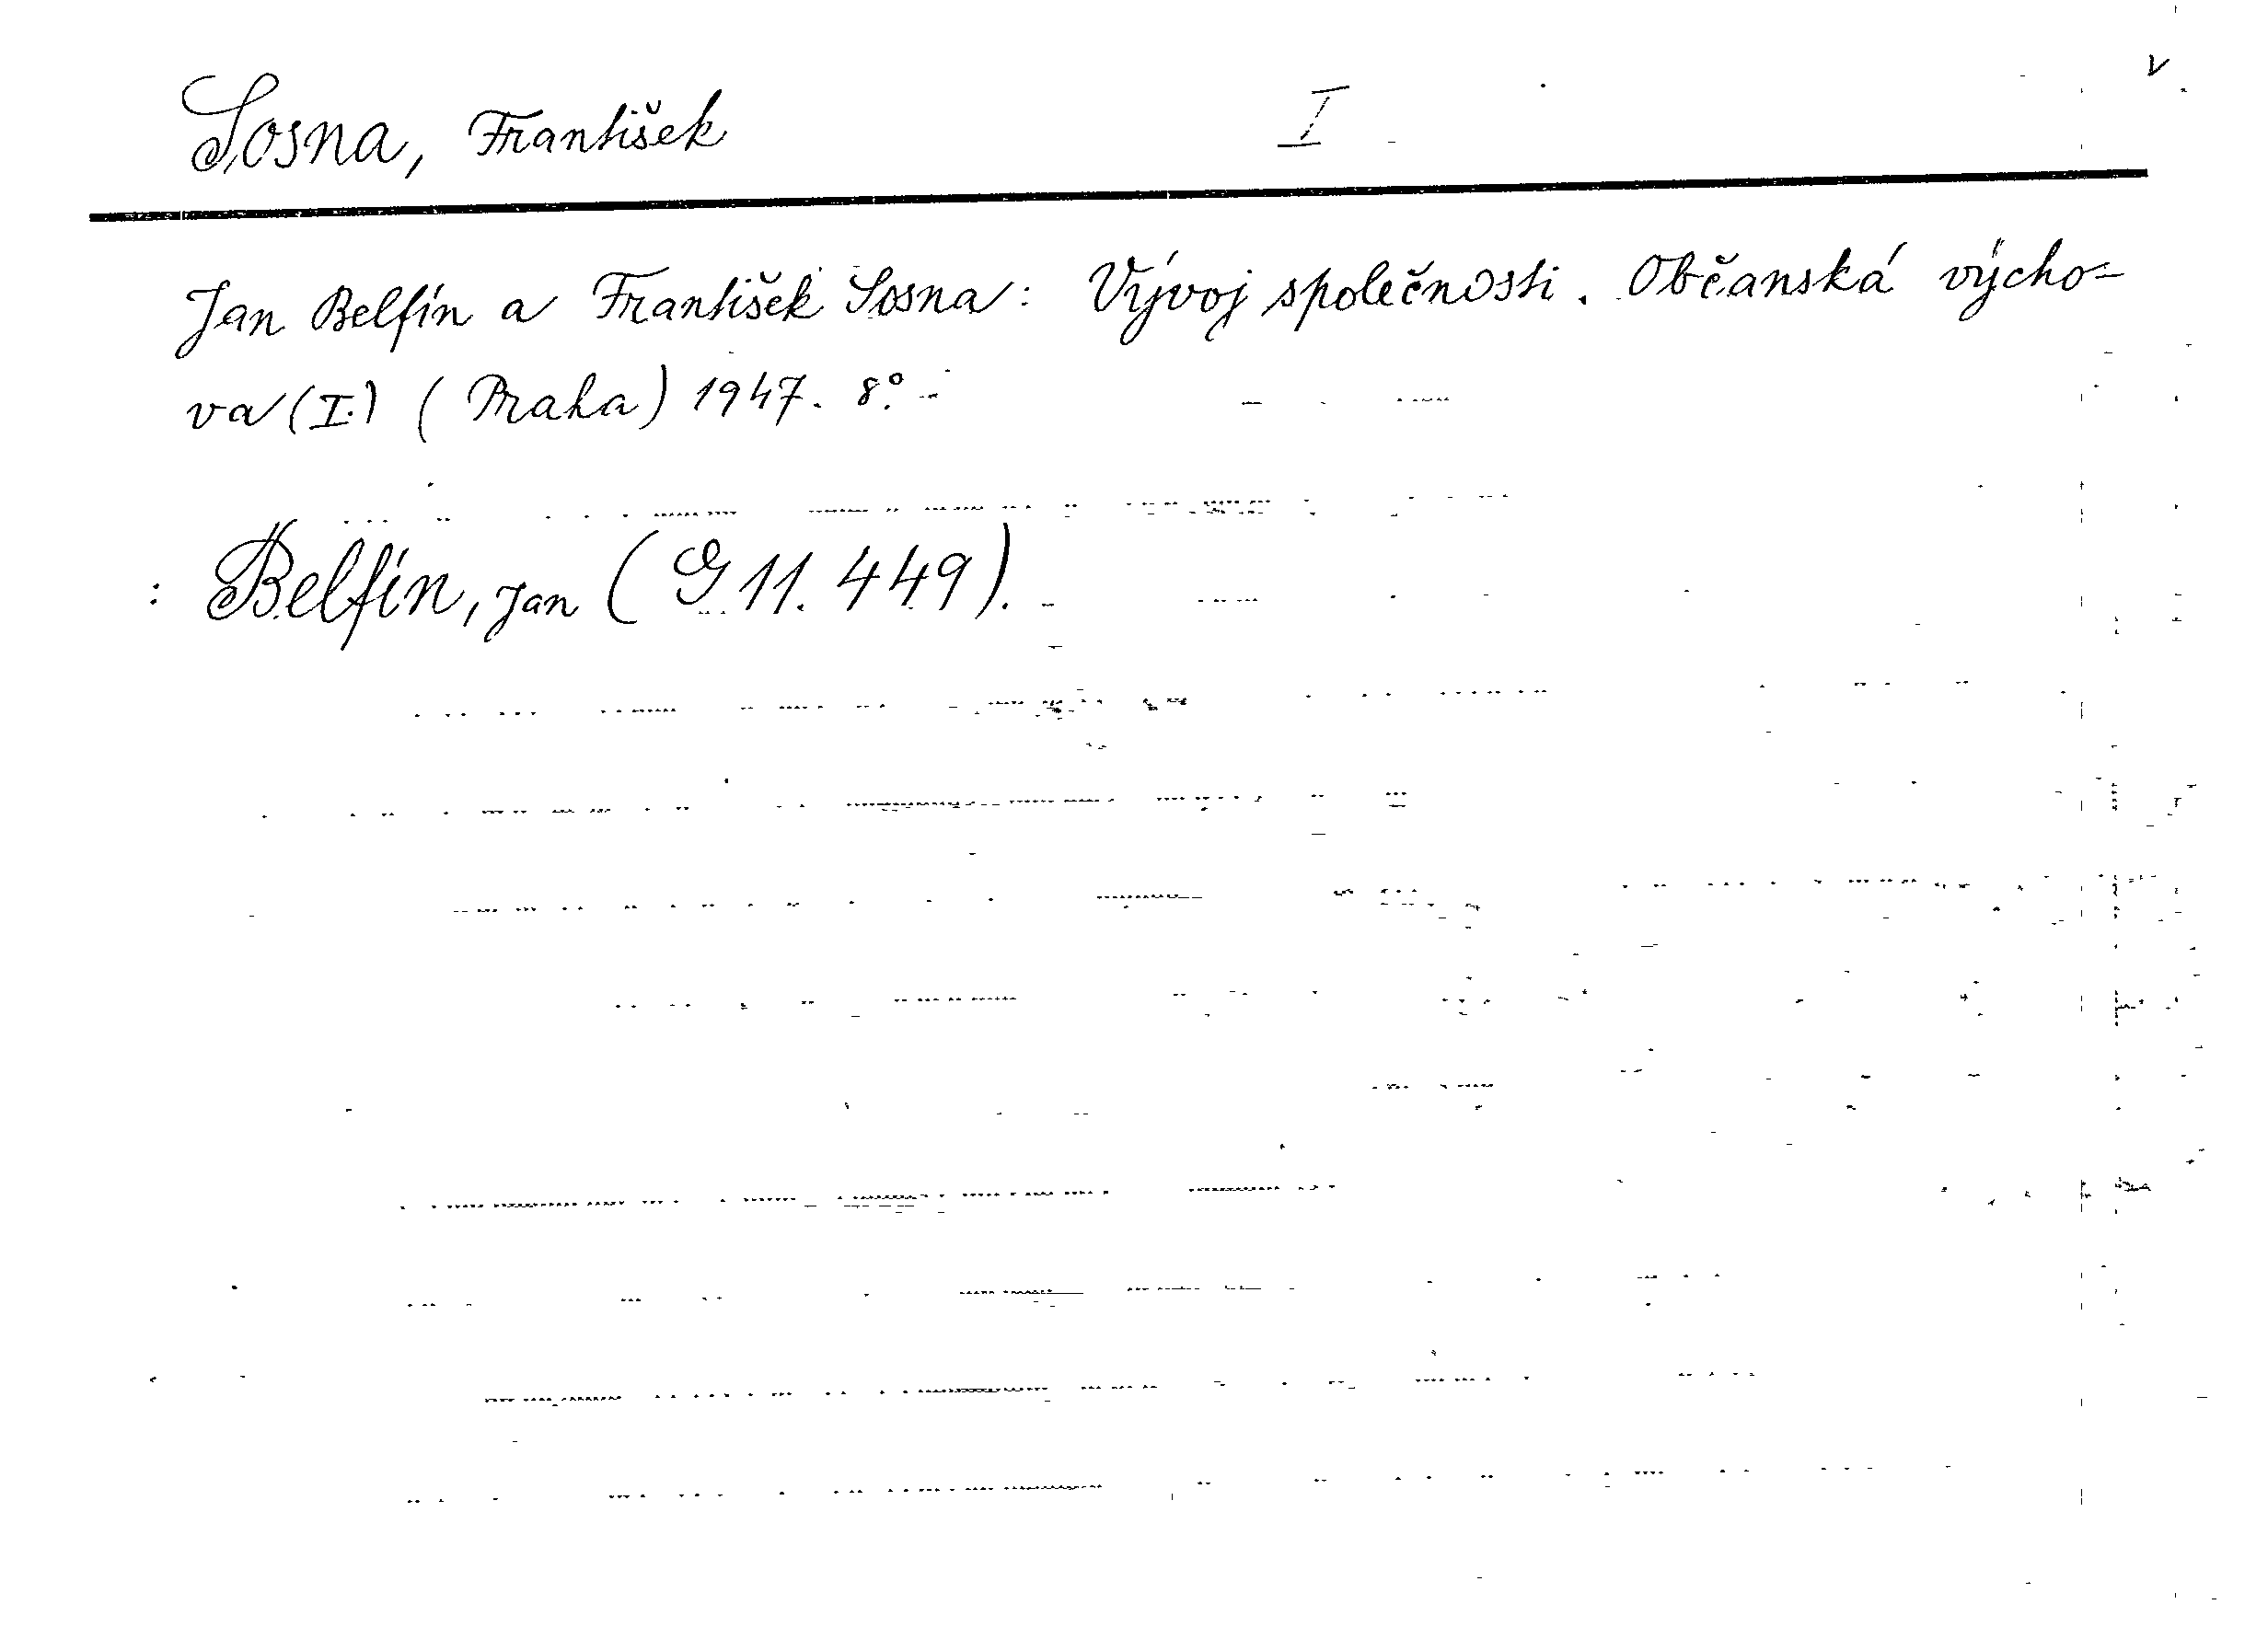 Sosna, František I v
Jan Belfín a František Sosna: Vývoj společnosti. Občanská výcho-
va (I.) (Praha) 1947. 8°.-
: Belfín, Jan (G 11.449).